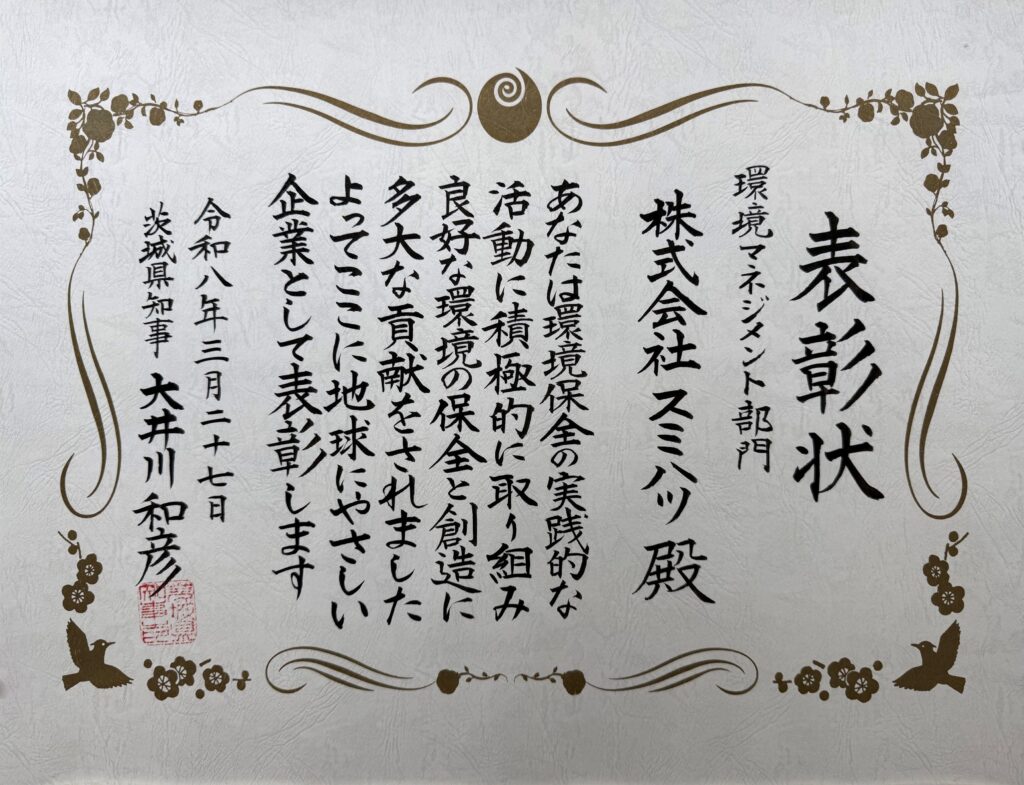 表彰状
環境マネジメント部門
株式会社スミハツ 殿
あなたは環境保全の実践的な
活動に積極的に取り組み
良好な環境の保全と創造に
多大な貢献をされました
よってここに地球にやさしい
企業として表彰します
令和八年三月二十七日
茨城県知事 大井川和彦